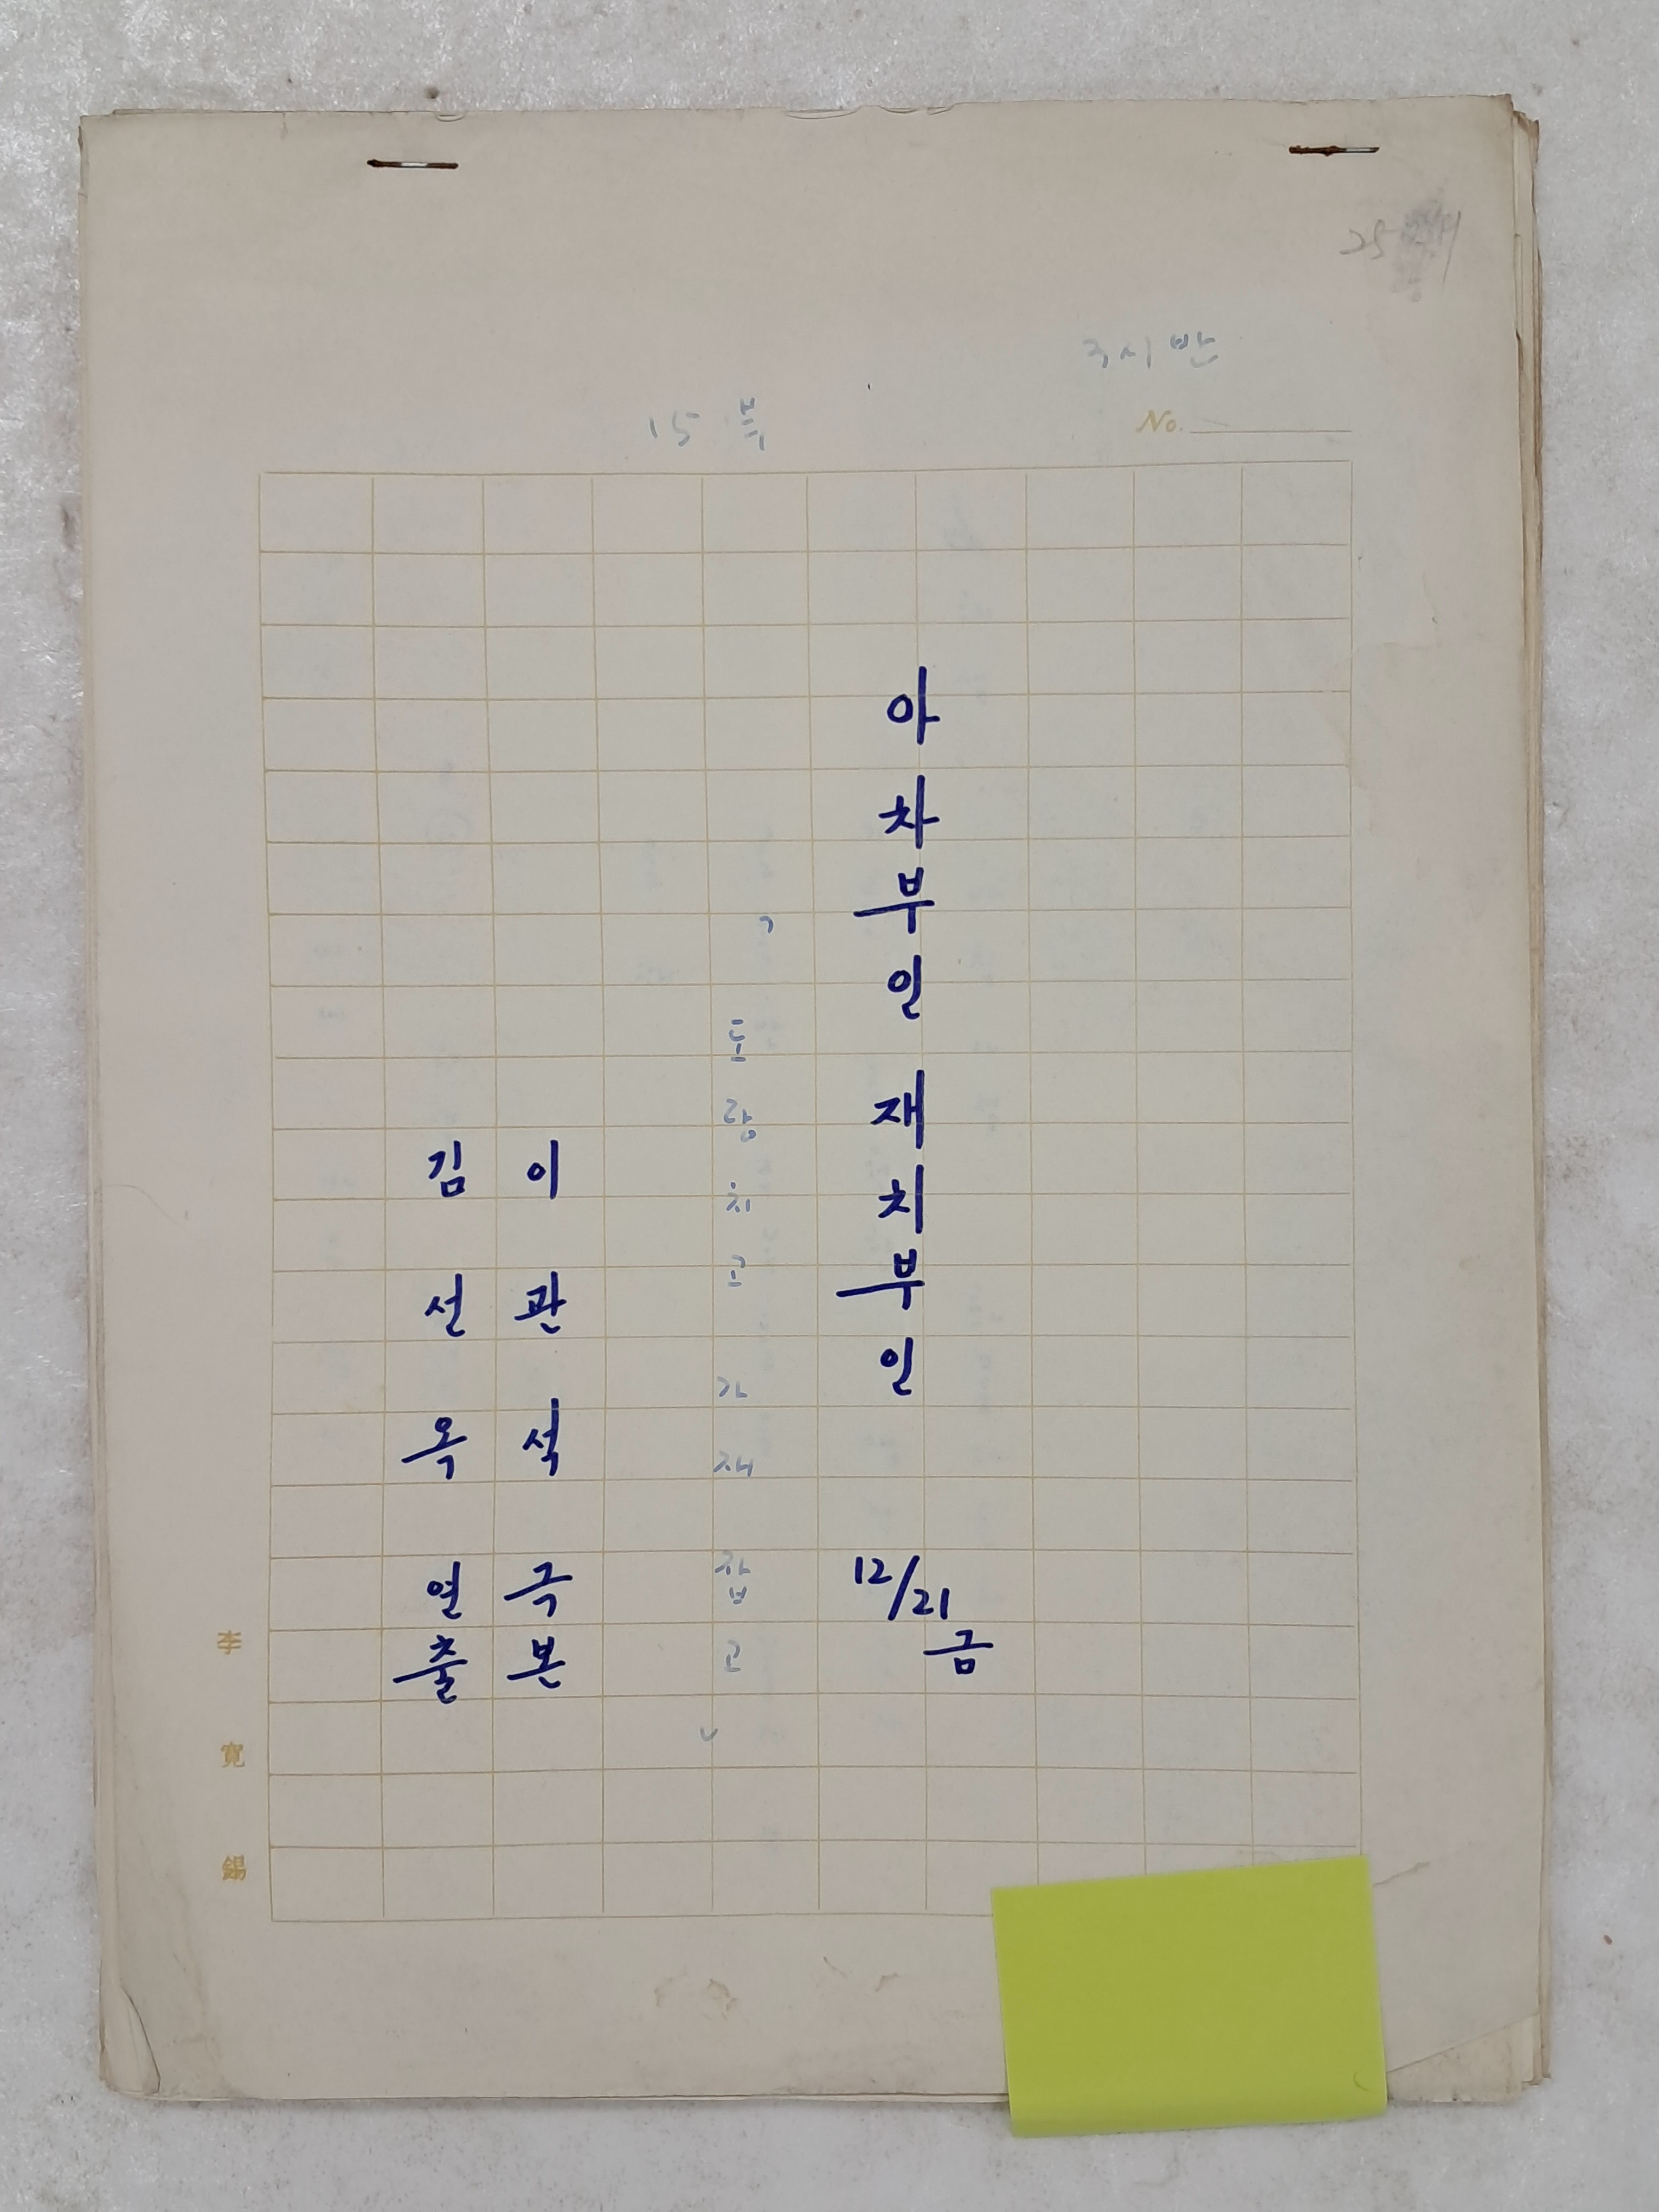 25
15 부
No.
아차부인 재치부인
12/21
금
도랑치고 가재 잡고
이관석 극본
김선옥 연출
李寬錫